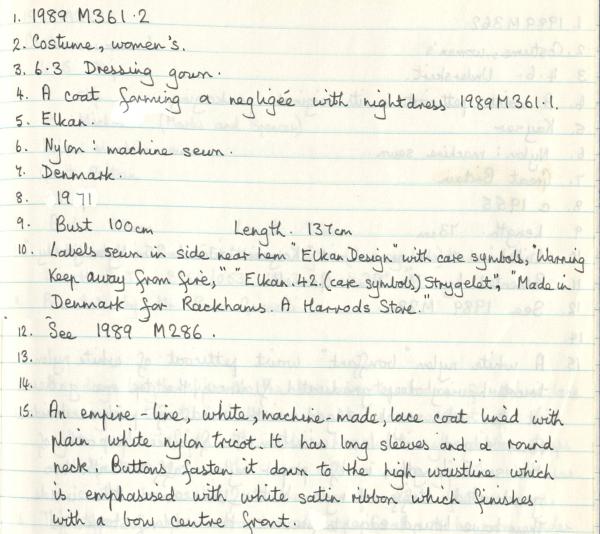 1. 1989 M361.2
2. Costume, women's.
3. 6.3 Dressing gown.
4. A coat forming a negligée with nightdress 1989M361.1.
5. Elkan.
6. Nylon: machine sewn.
7. Denmark.
8. 1971
9. Bust 100cm Length. 137cm
10. Labels sewn in side near hem "Elkan Design" with care symbols, "Warning
Keep away from fire," "Elkan.42.(care symbols) Strygelet", "Made in
Denmark for Rackhams. A Harrods Store."
12. See 1989 M286.
13.
14.
15. An empire-line, white, machine-made, lace coat lined with
plain white nylon tricot. It has long sleeves and a round
neck. Buttons fasten it down to the high waistline which
is emphasised with white satin ribbon which finishes
with a bow centre front.